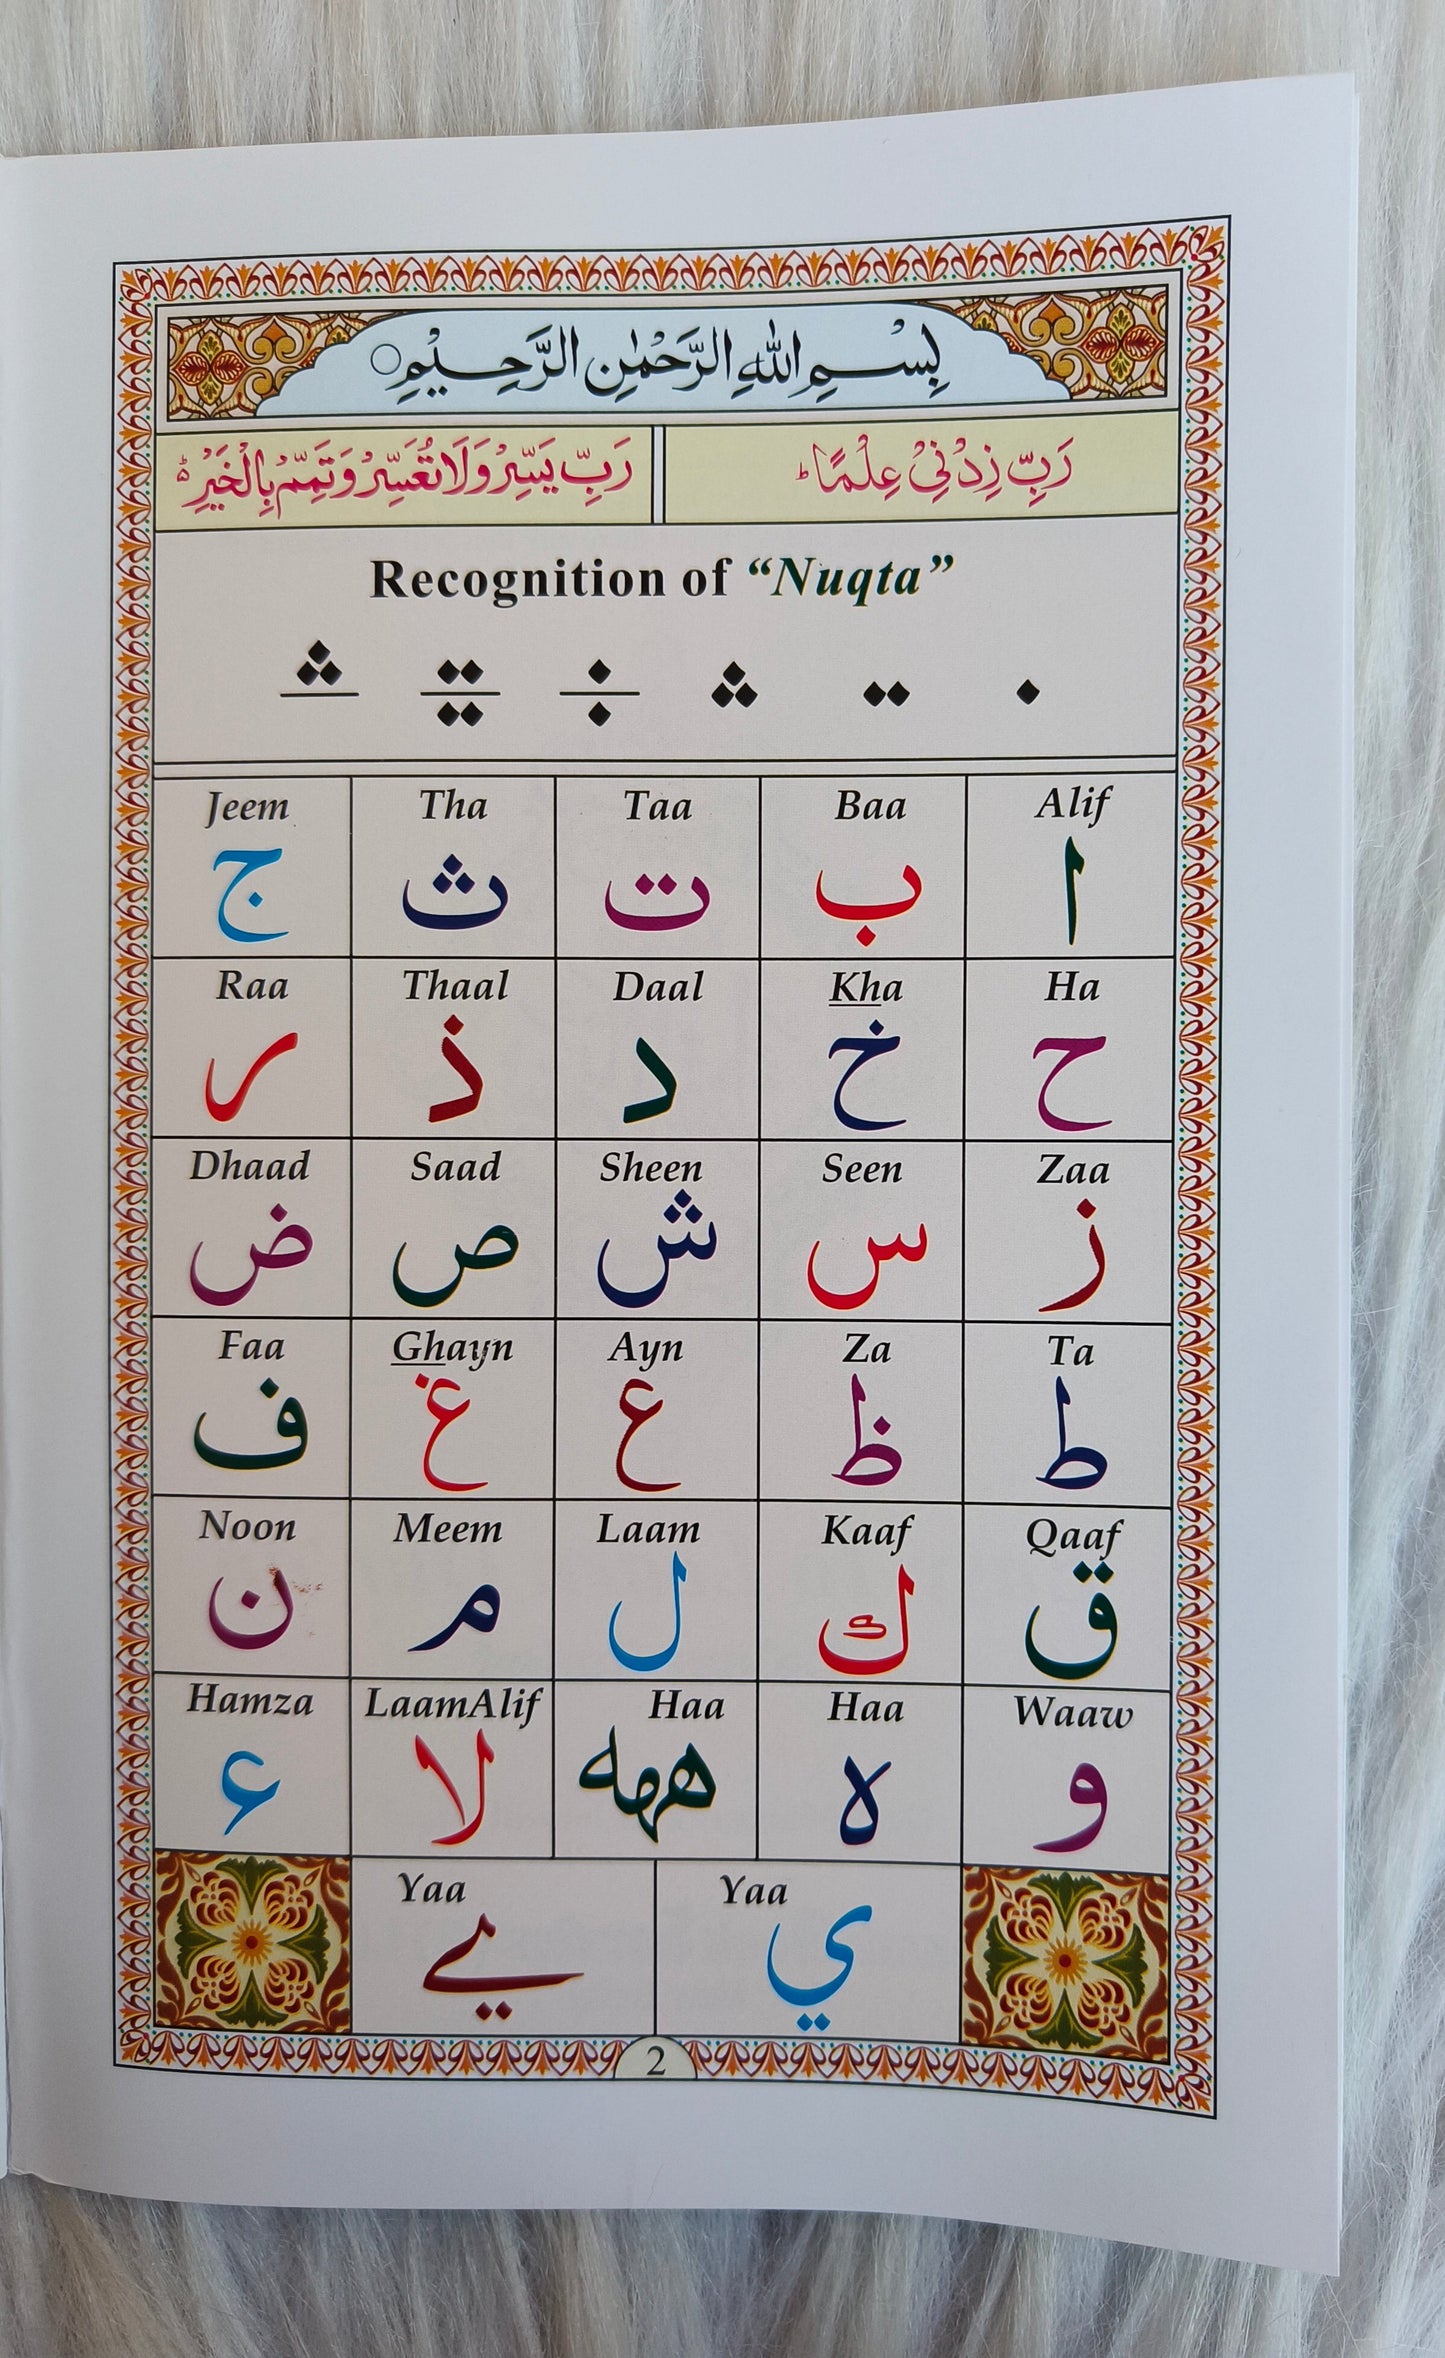 بِسْمِ اللهِ الرَّحْمٰنِ الرَّحِيْمِ ○
رَبِّ زِدْنِيْ عِلْمًا ؕ رَبِّ يَسِّرْ وَلَا تُعَسِّرْ وَتَمِّمْ بِالْخَيْرِ ؕ
Recognition of “Nuqta”
Alif Baa Taa Tha Jeem
ا ب ت ث ج
Ha Kha Daal Thaal Raa
ح خ د ذ ر
Zaa Seen Sheen Saad Dhaad
ز س ش ص ض
Ta Za Ayn Ghayn Faa
ط ظ ع غ ف
Qaaf Kaaf Laam Meem Noon
ق ك ل م ن
Waaw Haa Haa LaamAlif Hamza
و ه ههه لا ء
Yaa Yaa
ي يے
2